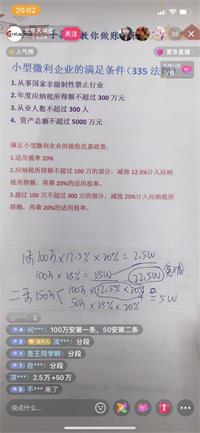 20:02
北京天华在
关注
教你做账
人气榜
更多直播
小型微利企业的满足条件（335 法则）
1.从事国家非限制禁止行业
2.年度应纳税所得额不超过 300 万元
3.从业人数不超过 300 人
4. 资产总额不超过 5000 万元
满足小型微利企业的税收优惠政策：
1.适用税率 20%
2.应纳税所得额不超过 100 万的部分，减按 12.5%计入应纳
税所得额，再乘 20%的适用税率。
3.超过 100 万不超过 300 万的部分，减按 25%计入应纳税所
得额，再乘 20%的适用税率。
100万×12.5%×20%=2.5W
100万×25%=25W
22.5W
150万
100万×12.5%×20%
50万×25%×20%
=5W
小***：3
闲***：100万安第一条，50安第二条
淡***：分段
是王同学啊：分段
自***：分段
凉***：2.5万+50万
不***来了
说点什么...